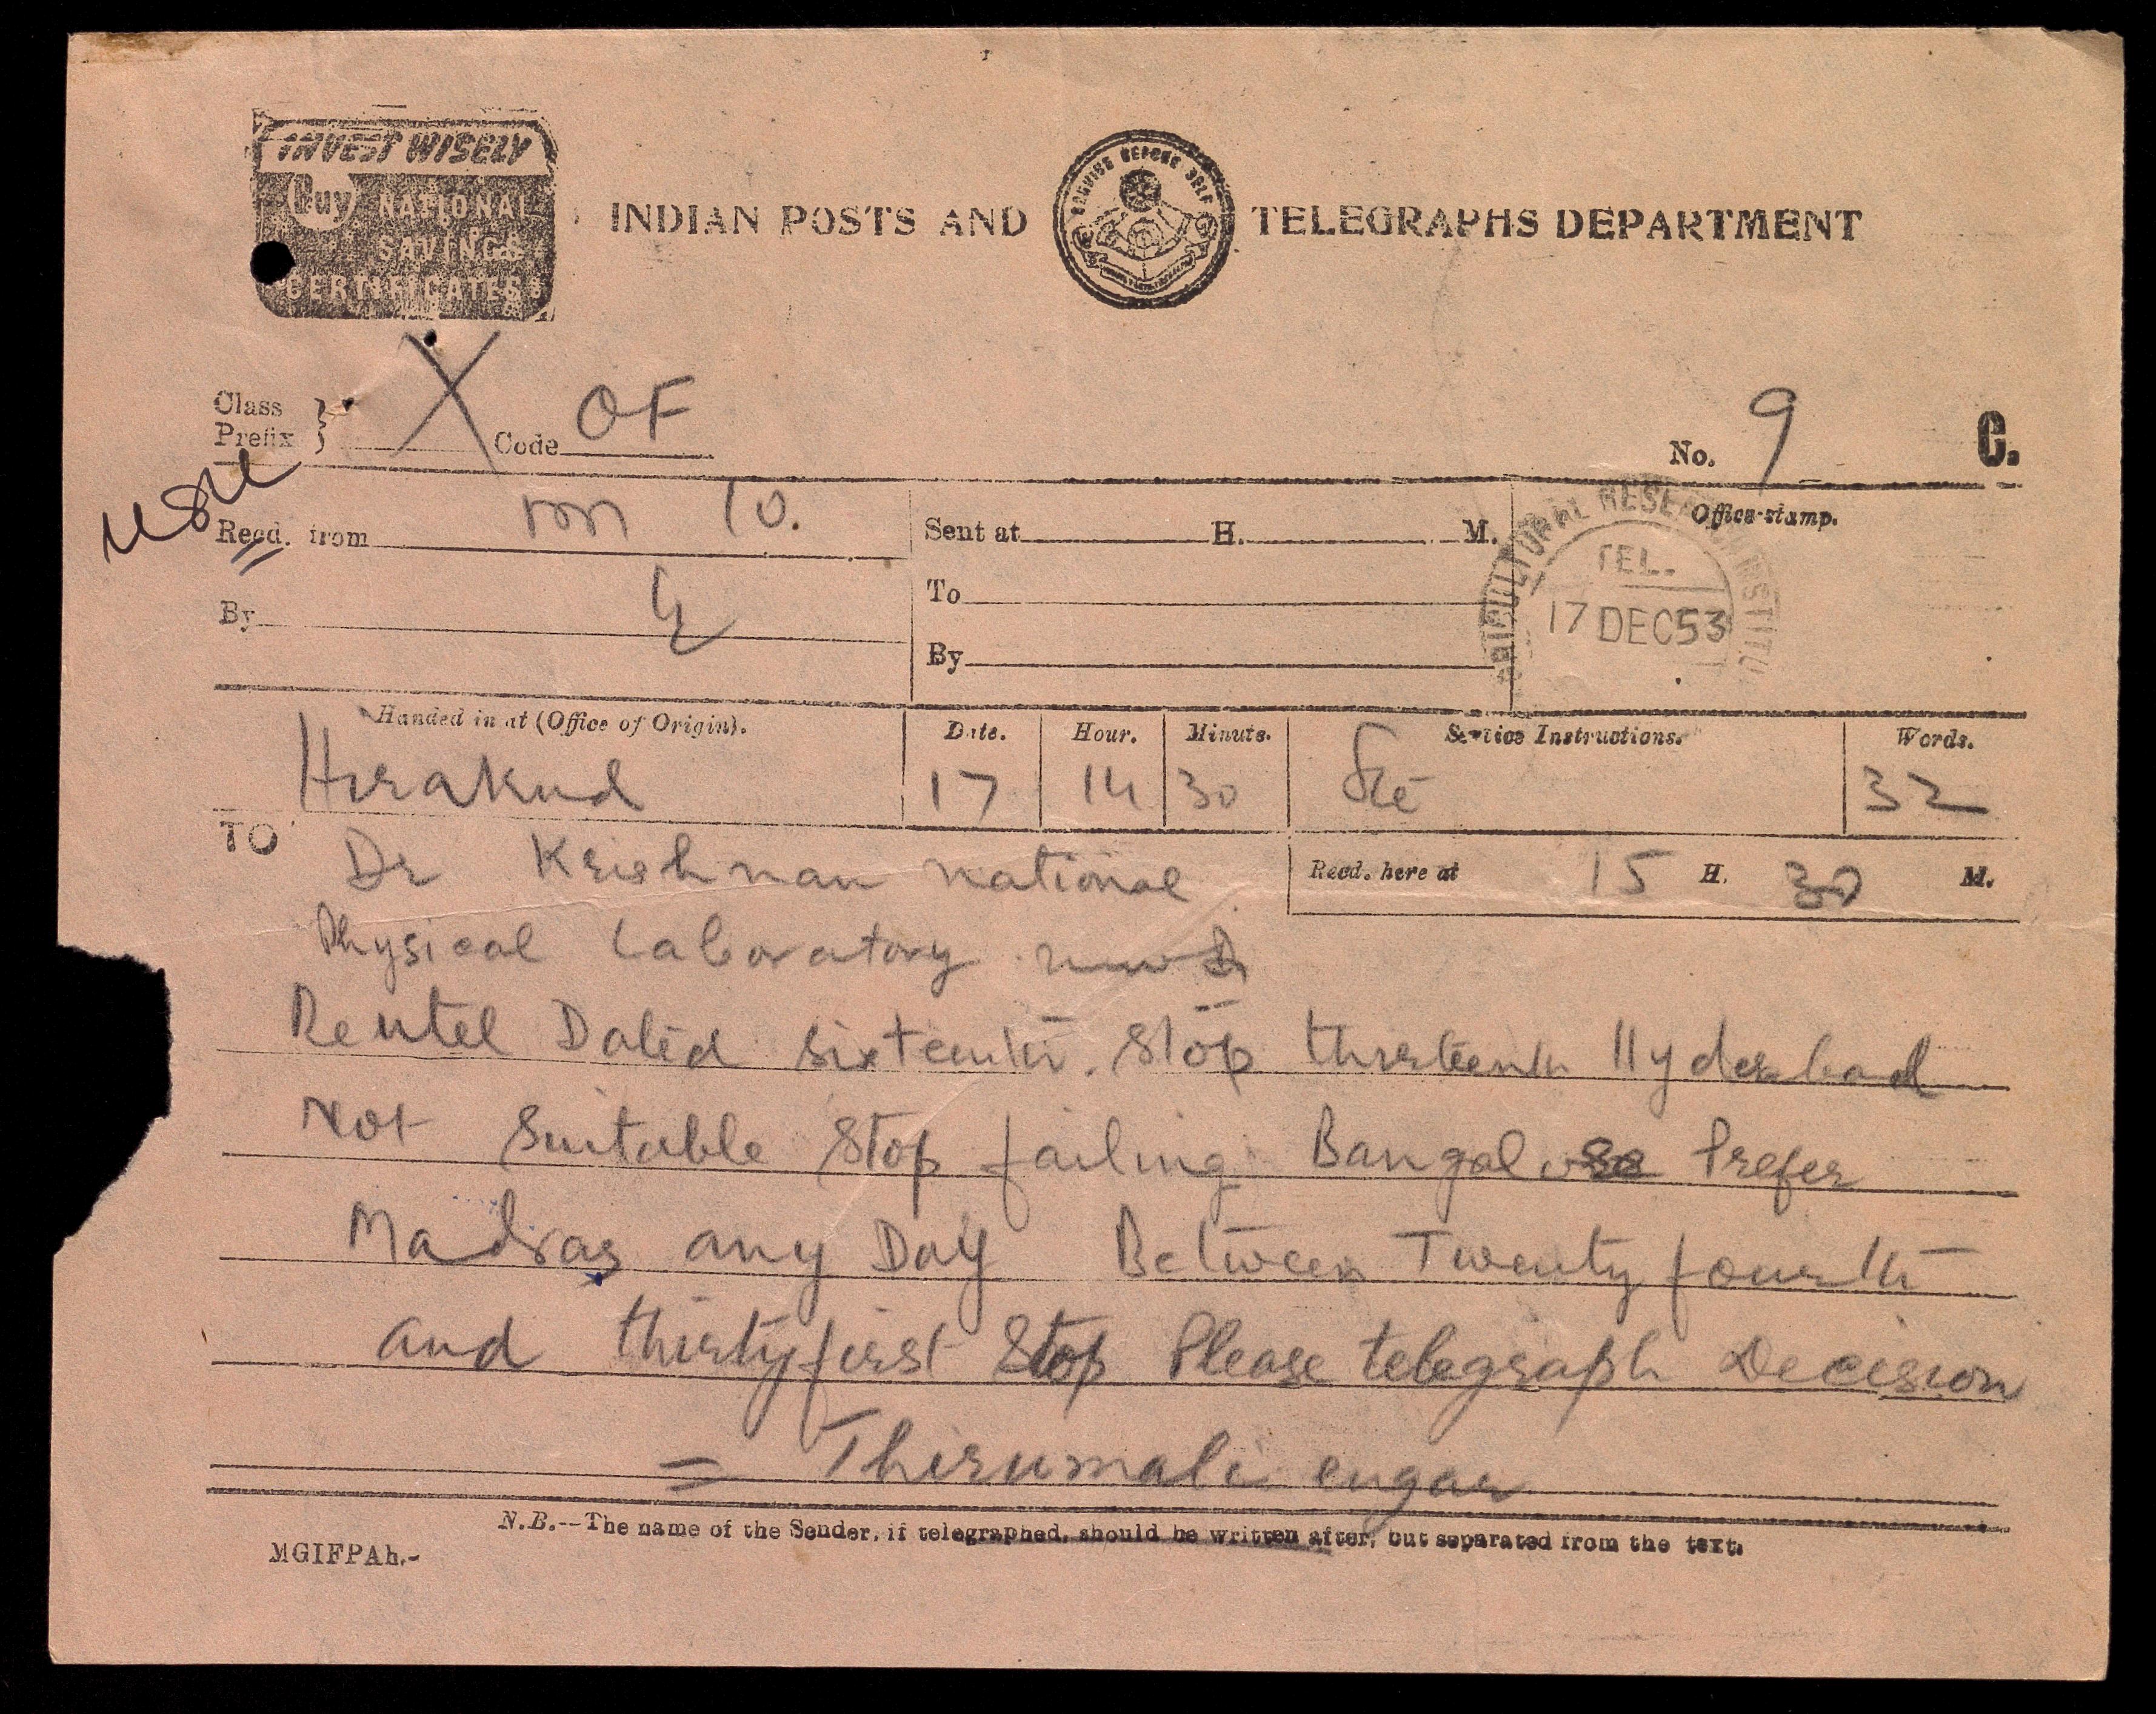 INVEST WISELY
Buy NATIONAL
SAVINGS
CERTIFICATES
INDIAN POSTS AND TELEGRAPHS DEPARTMENT
SERVICE BEFORE SELF
Class
Prefix } X Code OF
No. 9 C.
Recd. from 10.
Sent at H. M.
Office-stamp.
AGRICULTURAL RESEARCH INSTITU
TEL.
17 DEC 53
By
To
By
Handed in at (Office of Origin). Date. Hour. Minute. Service Instructions. Words.
Hirakud 17 14 30 32
TO Dr Krishnan National
Recd. here at 15 H. 30 M.
Physical Laboratory
Reutel Dated sixteenth. Stop thirteenth Hyderbad
Not Suitable Stop failing Bangalore Prefer
Madras any Day Between Twenty fourth
and thirtyfirst Stop Please telegraph Decision
= Thirumale engar
N.B.--The name of the Sender, if telegraphed, should be written after, but separated from the text.
MGIFPAh.-